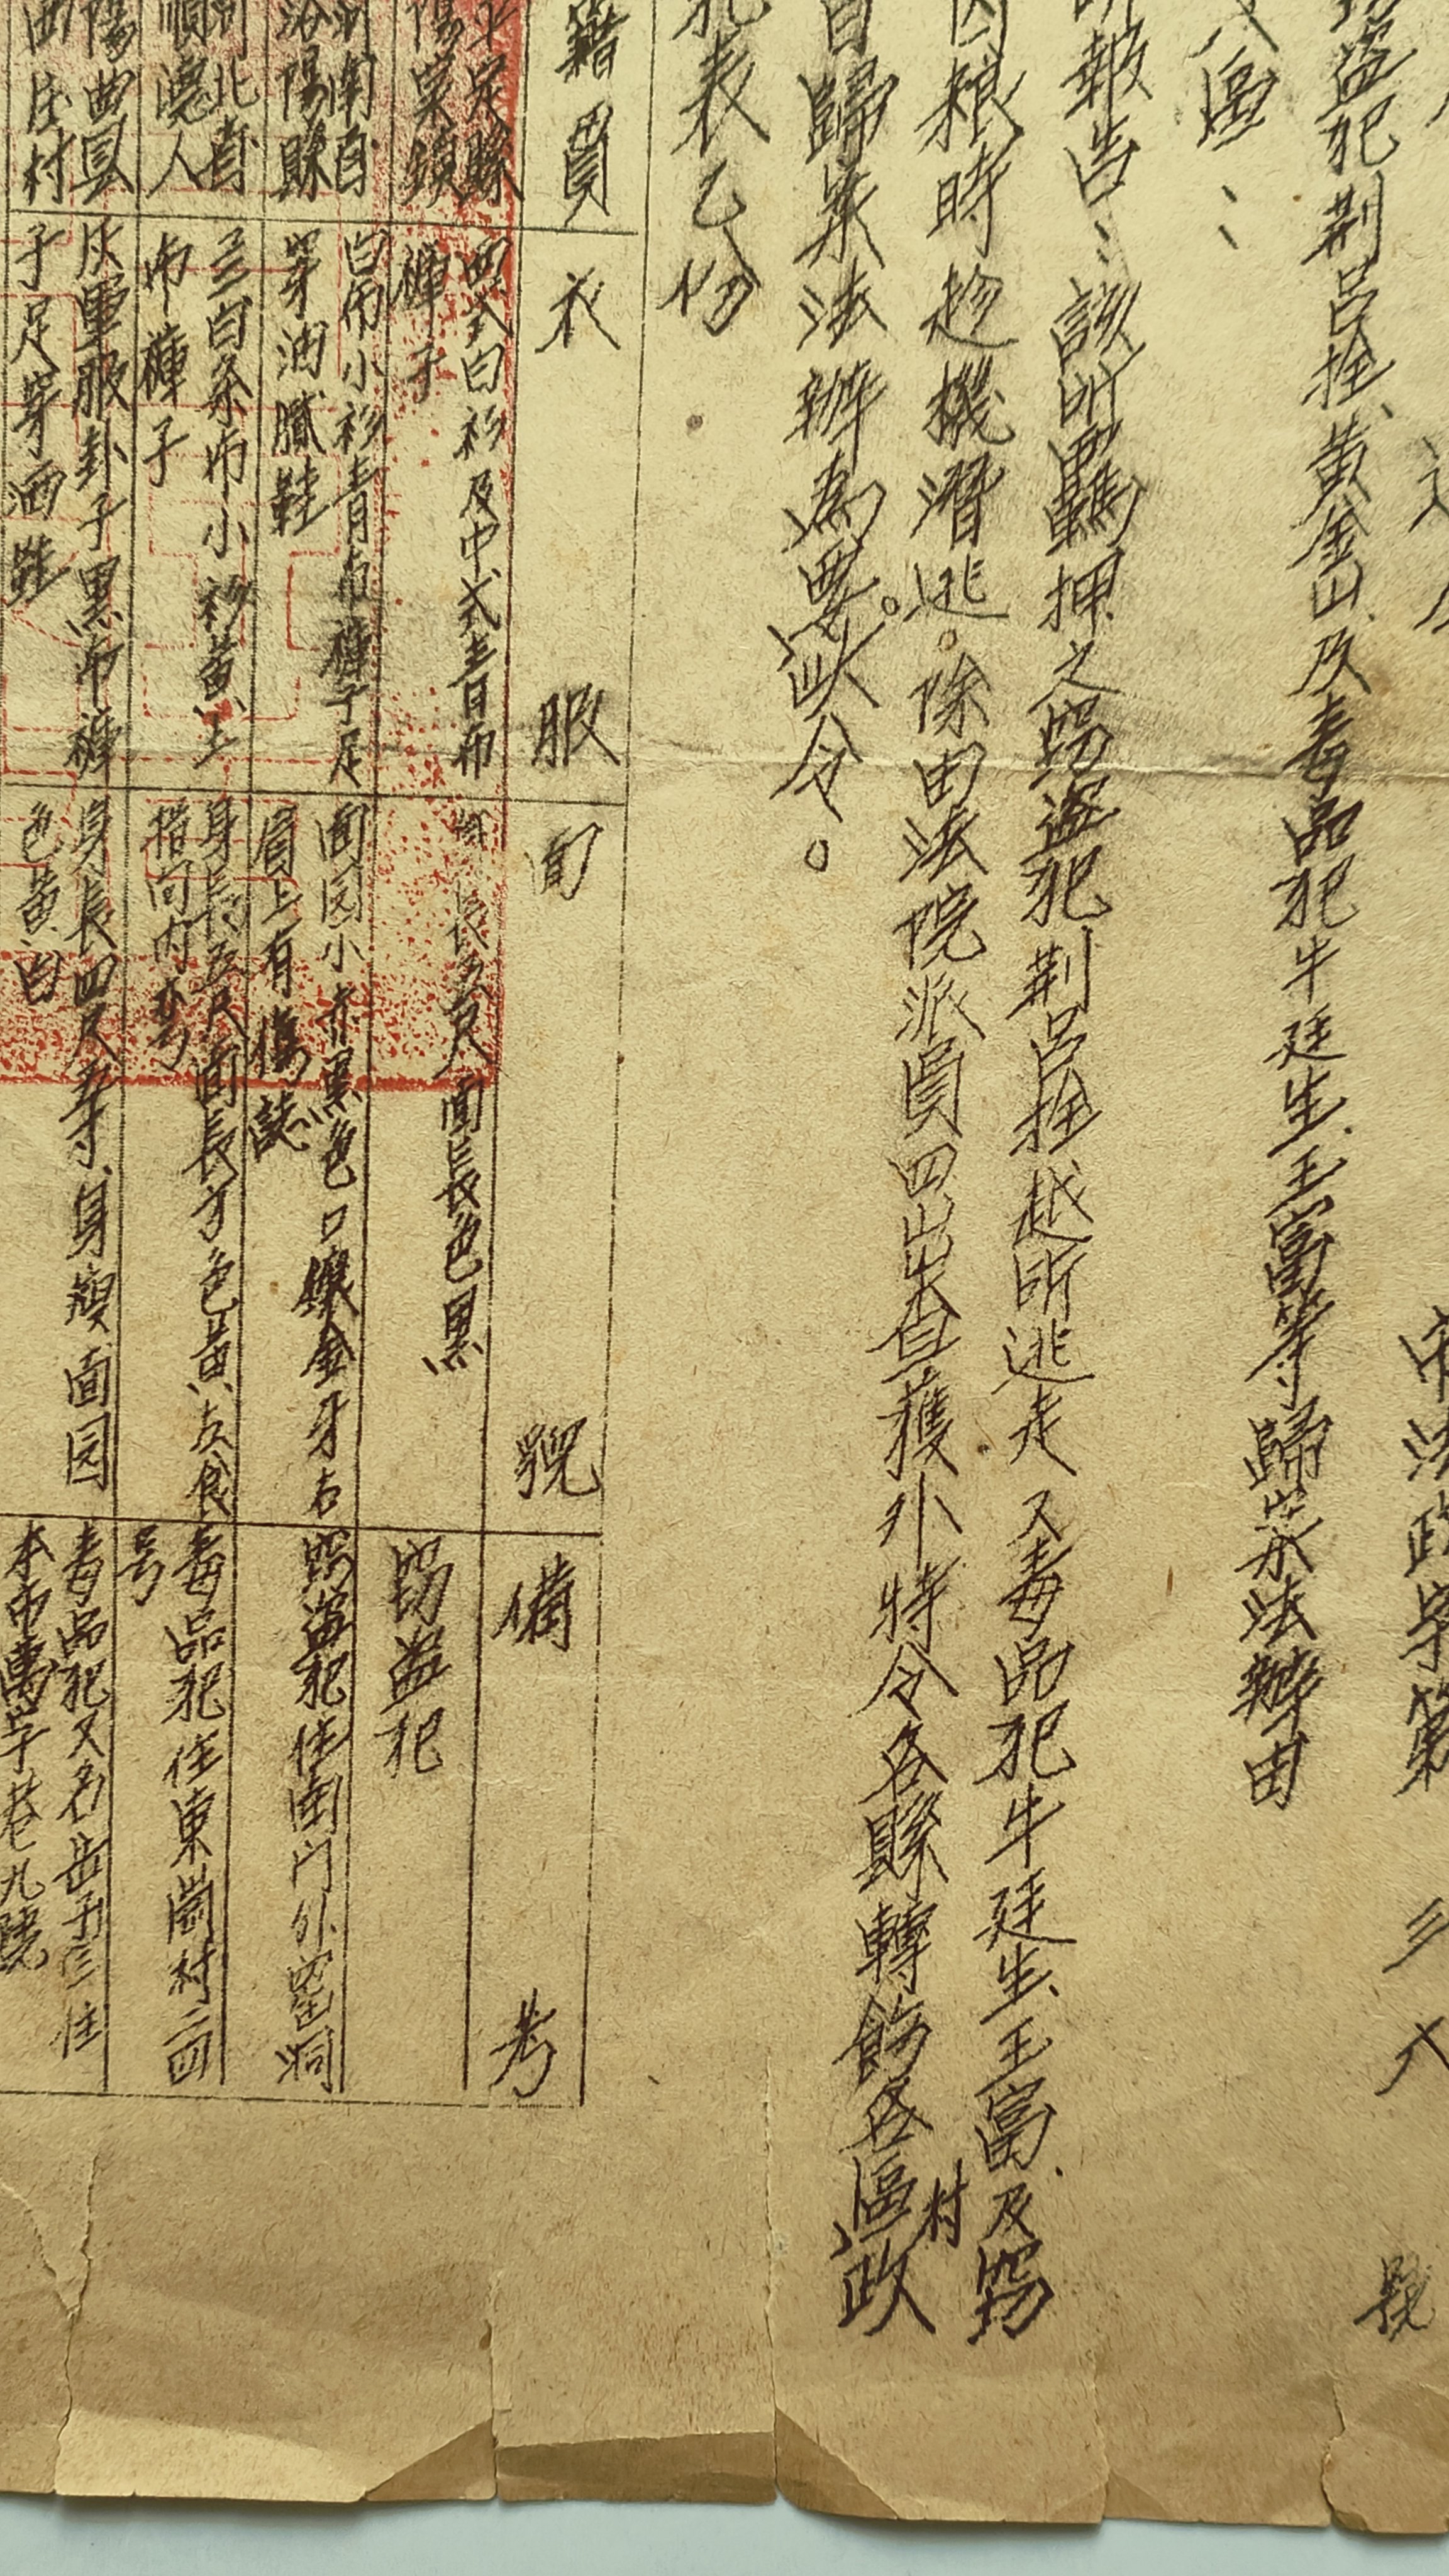 市法政字第 三八 號
盜犯荆呂拴、黃金山及毒品犯牛廷生、王富等歸案法辦由
八區：
報告：該所羈押之竊盜犯荆呂拴越所逃走又毒品犯牛廷生、王富及竊
因粮時趁機潛逃。除由法院派員四出查獲外特令各縣轉飭各區村政
歸案法辦為要。此令。
犯表乙份
籍貫 衣服 面貌 備考
平定縣 西式白衫及中式青布 長五尺面長色黑 竊盜犯
褲子
河南省 白布小衫青布褲子足 面园小赤黑色口鑲金牙右 竊盜犯住南门外窑洞
洛陽縣 穿油膩鞋 眉上有傷誌
河北省 三白条布小衫黃土 身長五尺面長方色黃左食 毒品犯住東崗村二四
順德人 布褲子 指向內弯 号
陽曲县 灰軍服卦子黑布褲 身長四尺 身瘦面园 毒品犯又名岳子三住
西庄村 子足穿洒鞋 色黃白 本市萬字巷九號